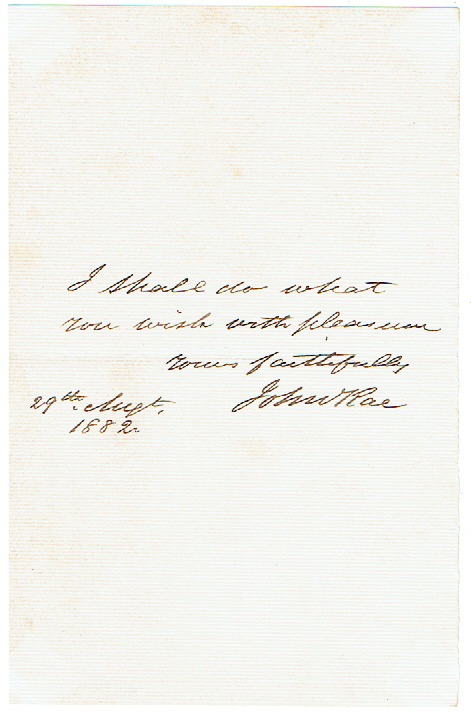 I shall do what
you wish with pleasure
yours faithfully
29th. Augt. John Rae
1882.